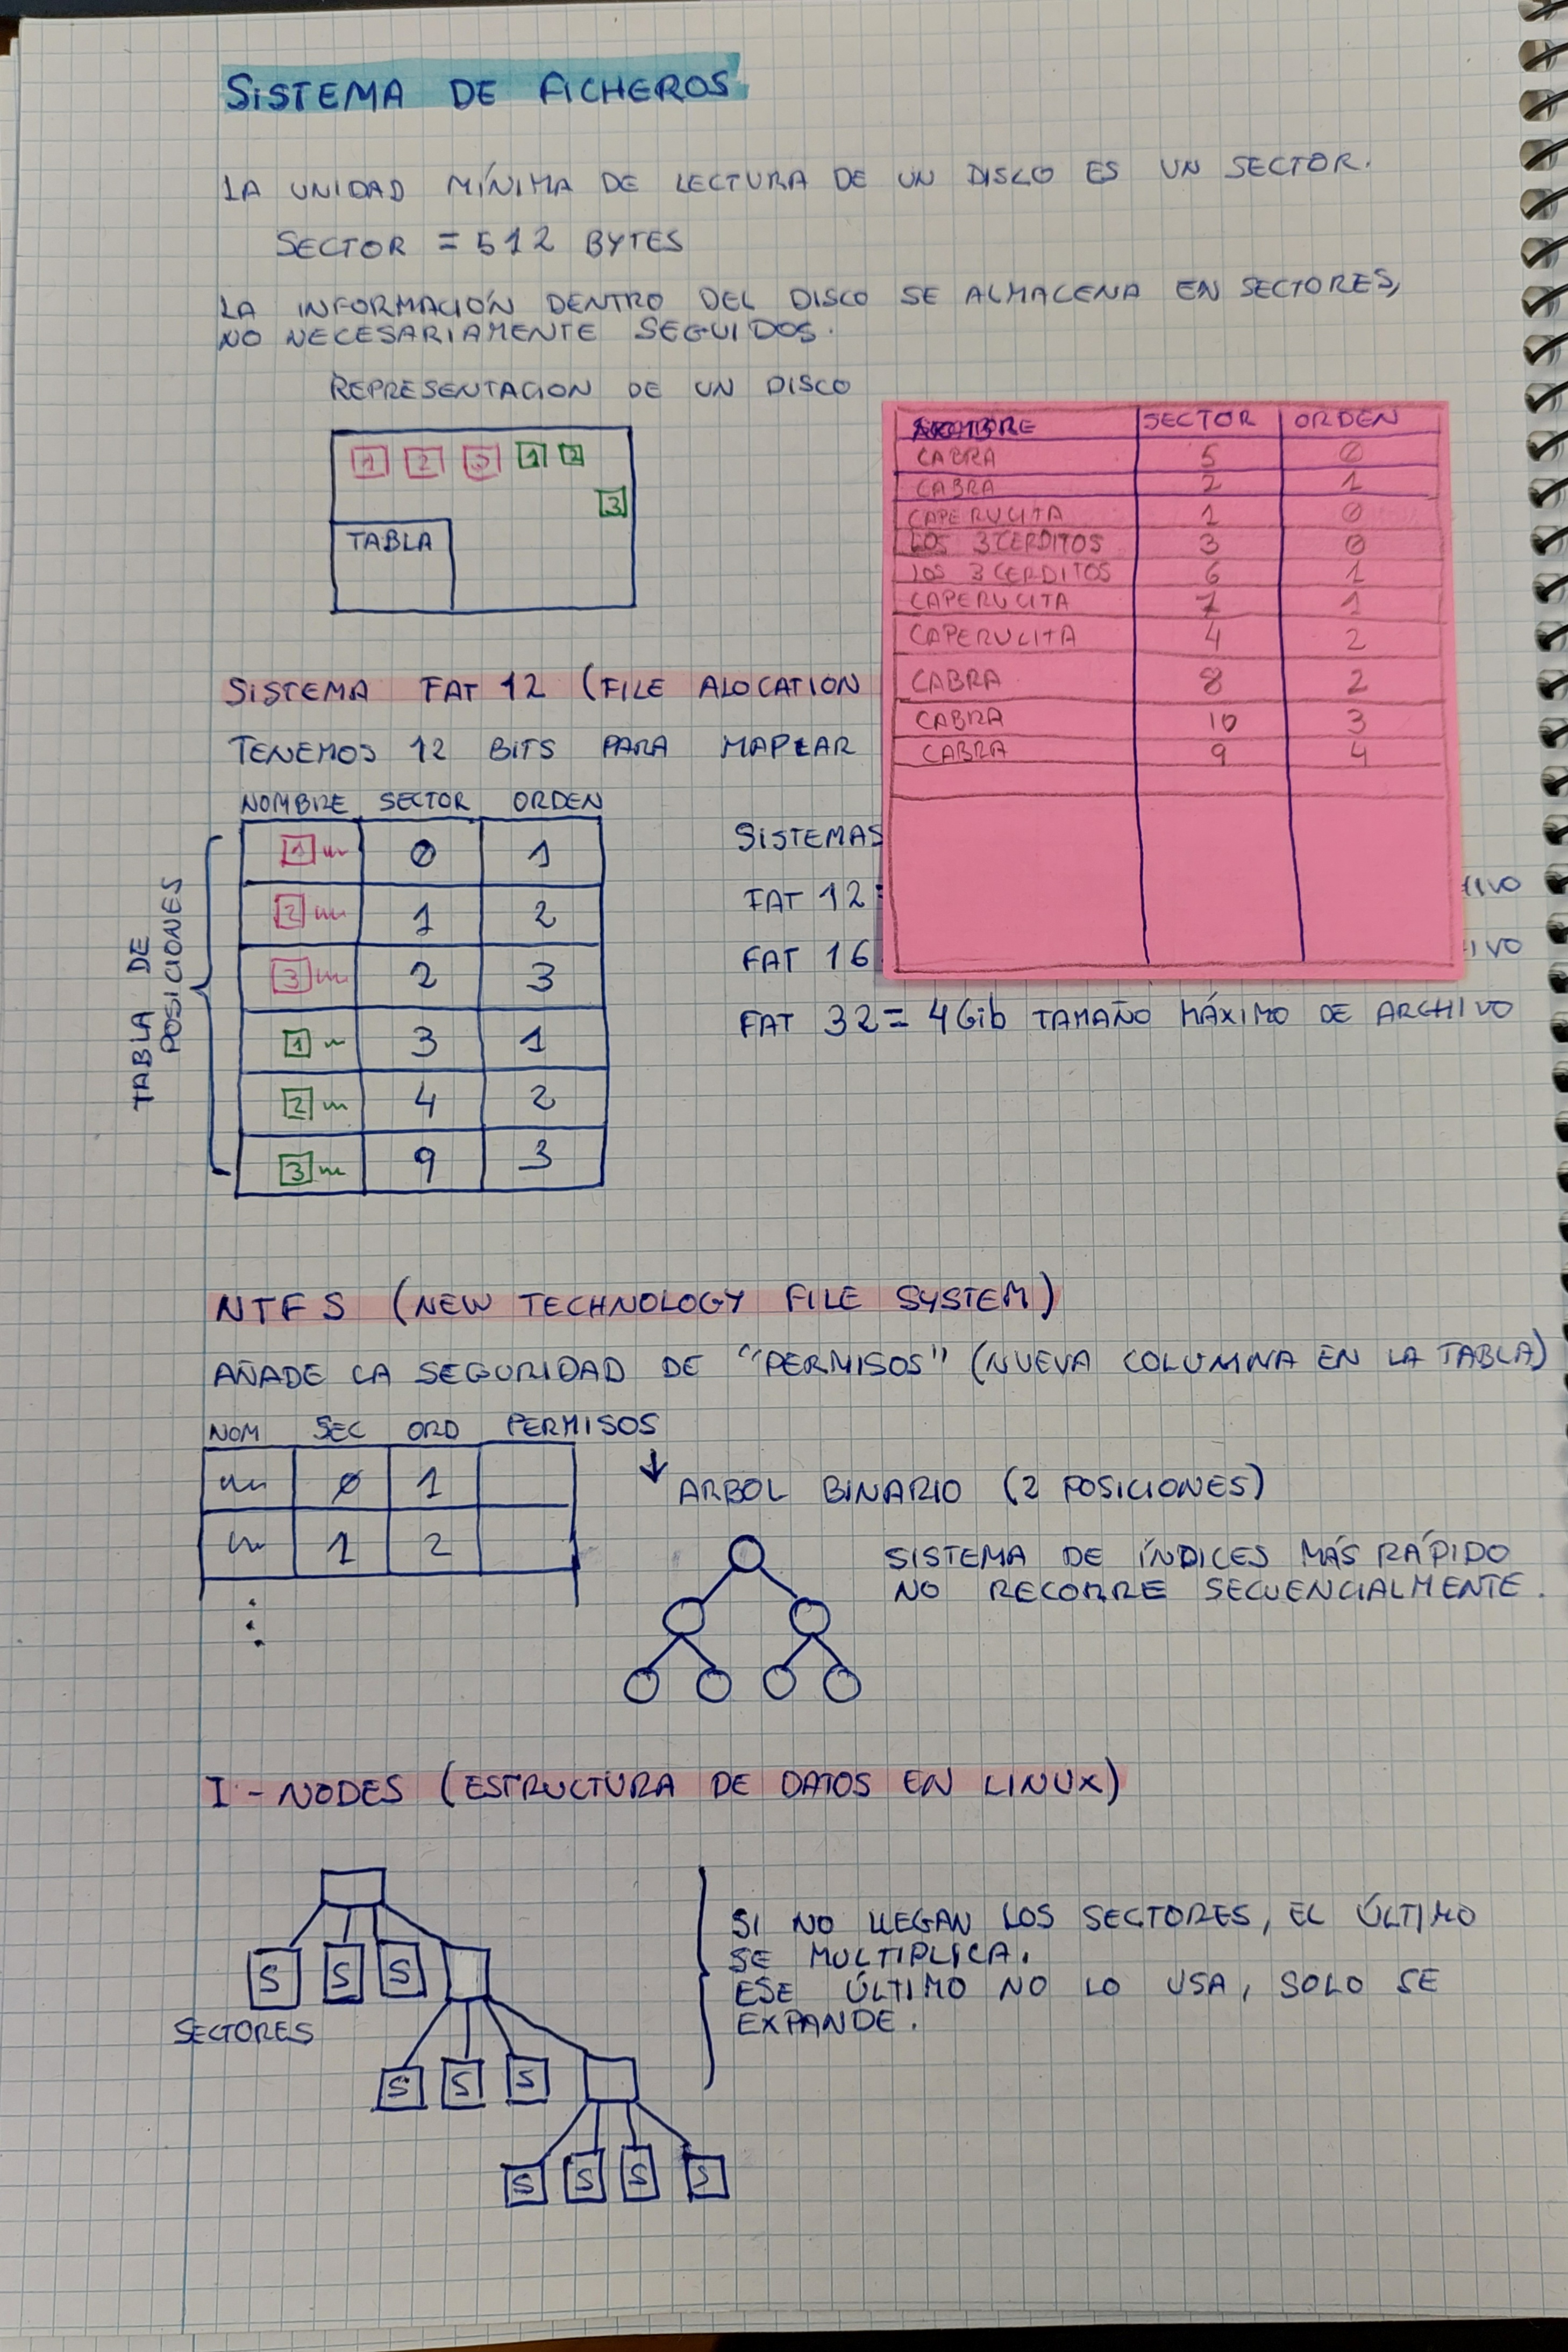 SISTEMA DE FICHEROS
LA UNIDAD MÍNIMA DE LECTURA DE UN DISCO ES UN SECTOR.
SECTOR = 512 BYTES
LA INFORMACIÓN DENTRO DEL DISCO SE ALMACENA EN SECTORES,
NO NECESARIAMENTE SEGUIDOS.
REPRESENTACION DE UN DISCO
1 2 3 1 2
3
TABLA
SECTOR ORDEN
CABRA 5 0
CABRA 2 1
CAPERUCITA 1 0
LOS 3 CERDITOS 3 0
LOS 3 CERDITOS 6 1
CAPERUCITA 7 1
CAPERUCITA 4 2
CABRA 8 2
CABRA 10 3
CABRA 9 4
SISTEMA FAT 12 (FILE ALOCATION
TENEMOS 12 BITS PARA MAPEAR
NOMBRE SECTOR ORDEN
TABLA DE
POSICIONES
1 0 1
2 1 2
3 2 3
1 3 1
2 4 2
3 9 3
SISTEMAS
FAT 12 =
FAT 16
IVO
FAT 32 = 4Gib TAMAÑO MÁXIMO DE ARCHIVO
NTFS (NEW TECHNOLOGY FILE SYSTEM)
AÑADE LA SEGURIDAD DE "PERMISOS" (NUEVA COLUMNA EN LA TABLA)
NOM SEC ORD PERMISOS
0 1
1 2
↓ ARBOL BINARIO (2 POSICIONES)
SISTEMA DE ÍNDICES MÁS RÁPIDO
NO RECORRE SECUENCIALMENTE.
I-NODES (ESTRUCTURA DE DATOS EN LINUX)
S S S
SECTORES
S S S
S S S S
SI NO LLEGAN LOS SECTORES, EL ÚLTIMO
SE MULTIPLICA.
ESE ÚLTIMO NO LO USA, SOLO SE
EXPANDE.